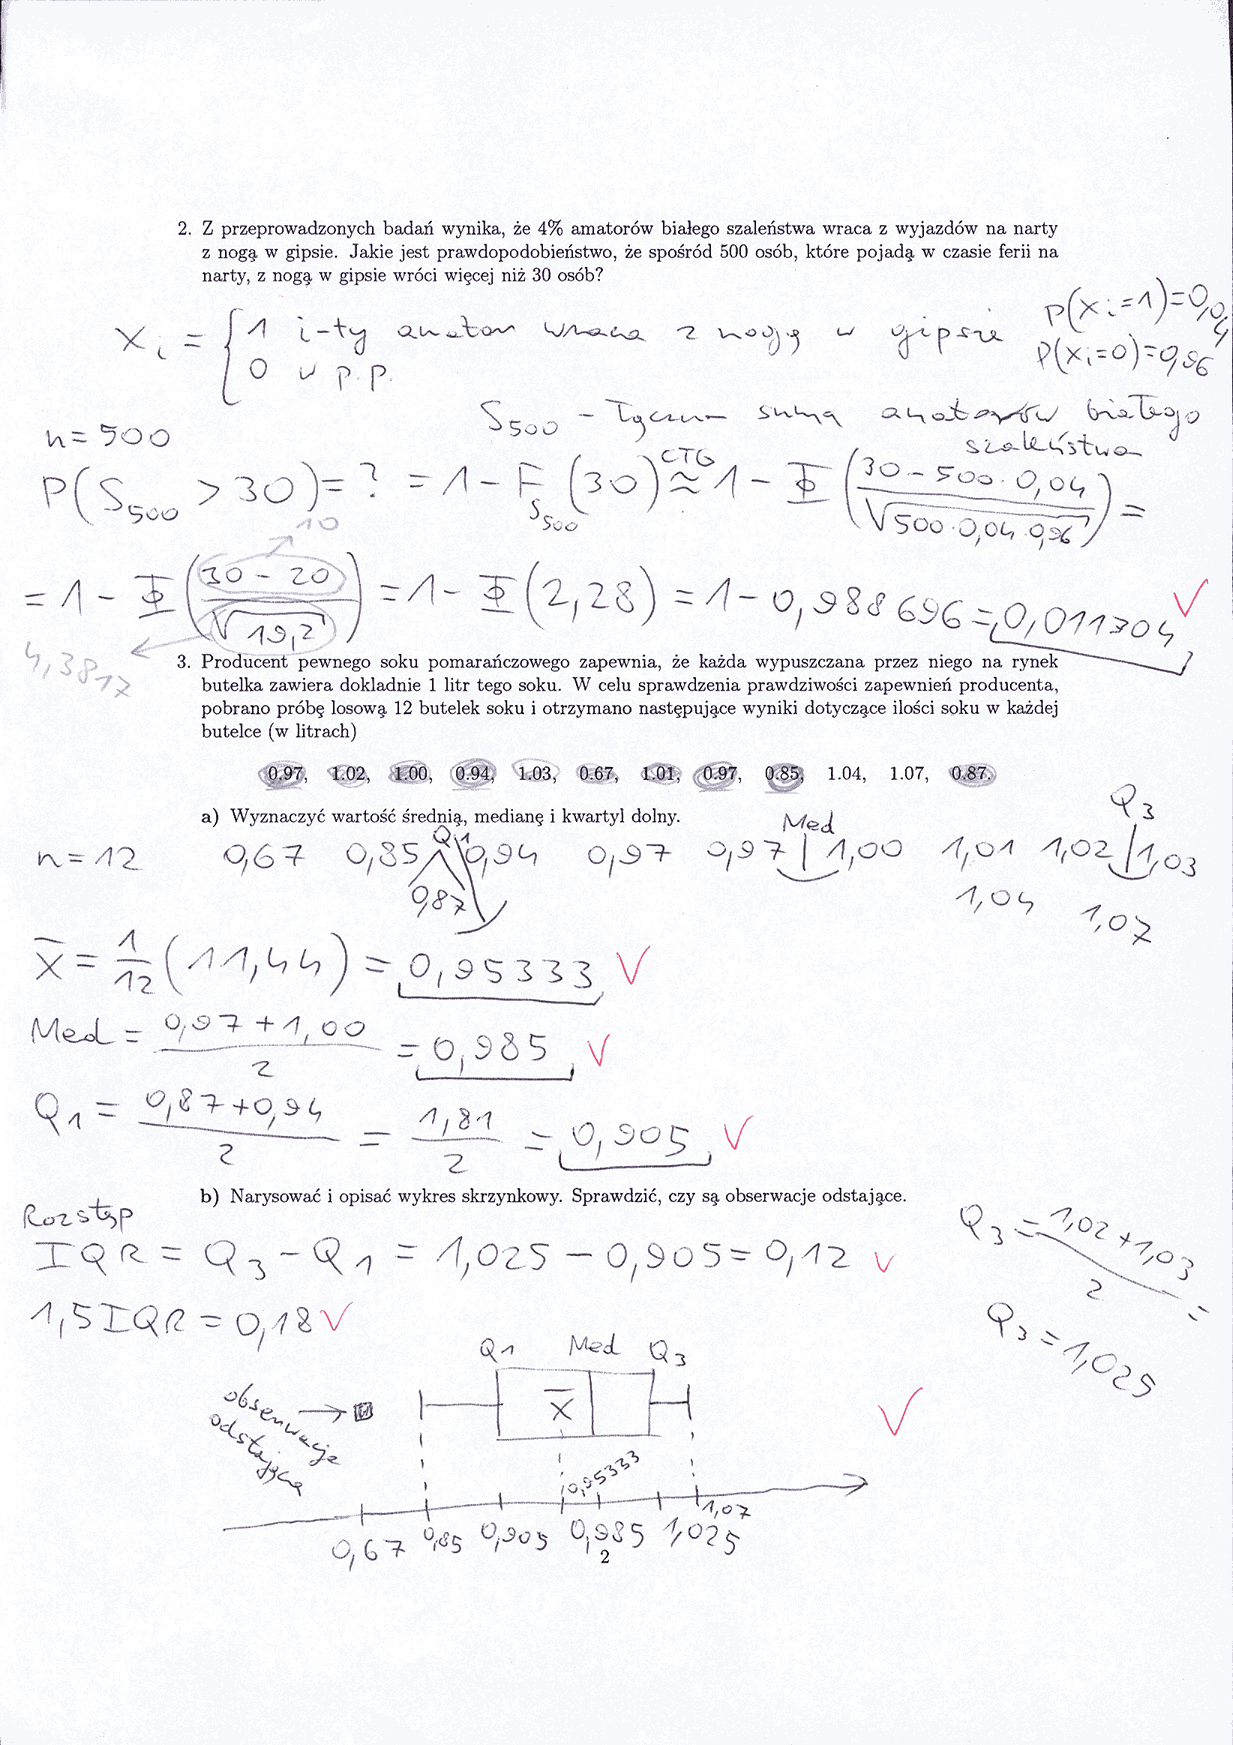 2. Z przeprowadzonych badań wynika, że 4% amatorów białego szaleństwa wraca z wyjazdów na narty
z nogą w gipsie. Jakie jest prawdopodobieństwo, że spośród 500 osób, które pojadą w czasie ferii na
narty, z nogą w gipsie wróci więcej niż 30 osób?
X_i = { 1 i-ty amator wraca z nogą w gipsie P(X_i=1)=0,04
0 w p.p. P(X_i=0)=0,96
S_500 - łączna suma amatorów białego
szaleństwa
n = 500
P(S_500 > 30) = ? = 1 - F_S_500 (30) CTG ≈ 1 - Φ((30 - 500·0,04)/√(500·0,04·0,96)) =
10
= 1 - Φ((30 - 20)/√19,2) = 1 - Φ(2,28) = 1 - 0,988696 = 0,011304 √
4,3817
3. Producent pewnego soku pomarańczowego zapewnia, że każda wypuszczana przez niego na rynek
butelka zawiera dokladnie 1 litr tego soku. W celu sprawdzenia prawdziwości zapewnień producenta,
pobrano próbę losową 12 butelek soku i otrzymano następujące wyniki dotyczące ilości soku w każdej
butelce (w litrach)
0.97, 1.02, 1.00, 0.94, 1.03, 0.67, 1.01, 0.97, 0.85, 1.04, 1.07, 0.87.
a) Wyznaczyć wartość średnią, medianę i kwartyl dolny.
Q1 Med Q3
n = 12 0,67 0,85 0,94 0,97 0,97 | 1,00 1,01 1,02 | 1,03
0,87 1,04 1,07
x̄ = 1/12 (11,44) = 0,95333 √
Med = (0,97 + 1,00)/2 = 0,985 √
Q1 = (0,87 + 0,94)/2 = 1,81/2 = 0,905 √
b) Narysować i opisać wykres skrzynkowy. Sprawdzić, czy są obserwacje odstające.
Rozstęp
IQR = Q3 - Q1 = 1,025 - 0,905 = 0,12 √
Q3 = (1,02 + 1,03)/2 =
Q3 = 1,025
1,5 IQR = 0,18 √
Q1 Med Q3
obserwacja
odstająca
x̄
√
0,95333
1,07
0,67 0,85 0,905 0,985 1,025
2